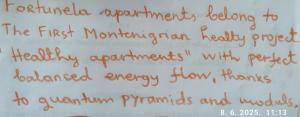 Fortunela apartments belong to
The First Montenigrian healty project
"Healthy apartments" with perfect
balanced energy flow, thanks
to quantum pyramids and moduls.
8. 6. 2025, 11:13